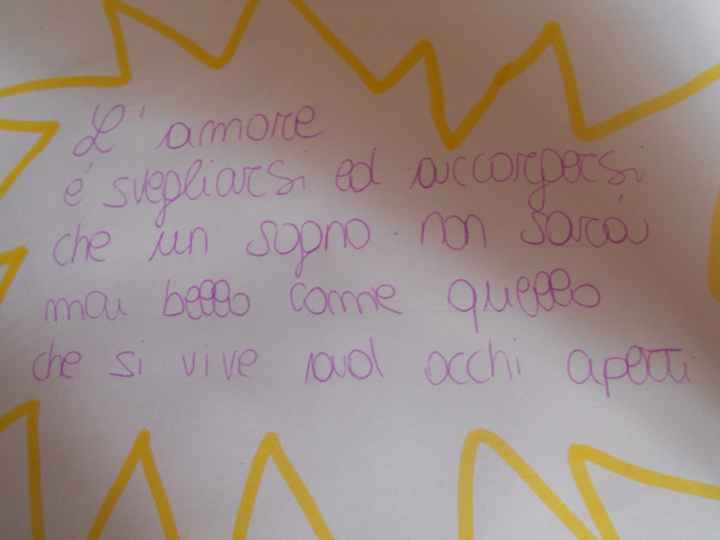 L' amore
é svegliarsi ed accorgersi
che un sogno non sarà
mai bello come quello
che si vive ad occhi aperti